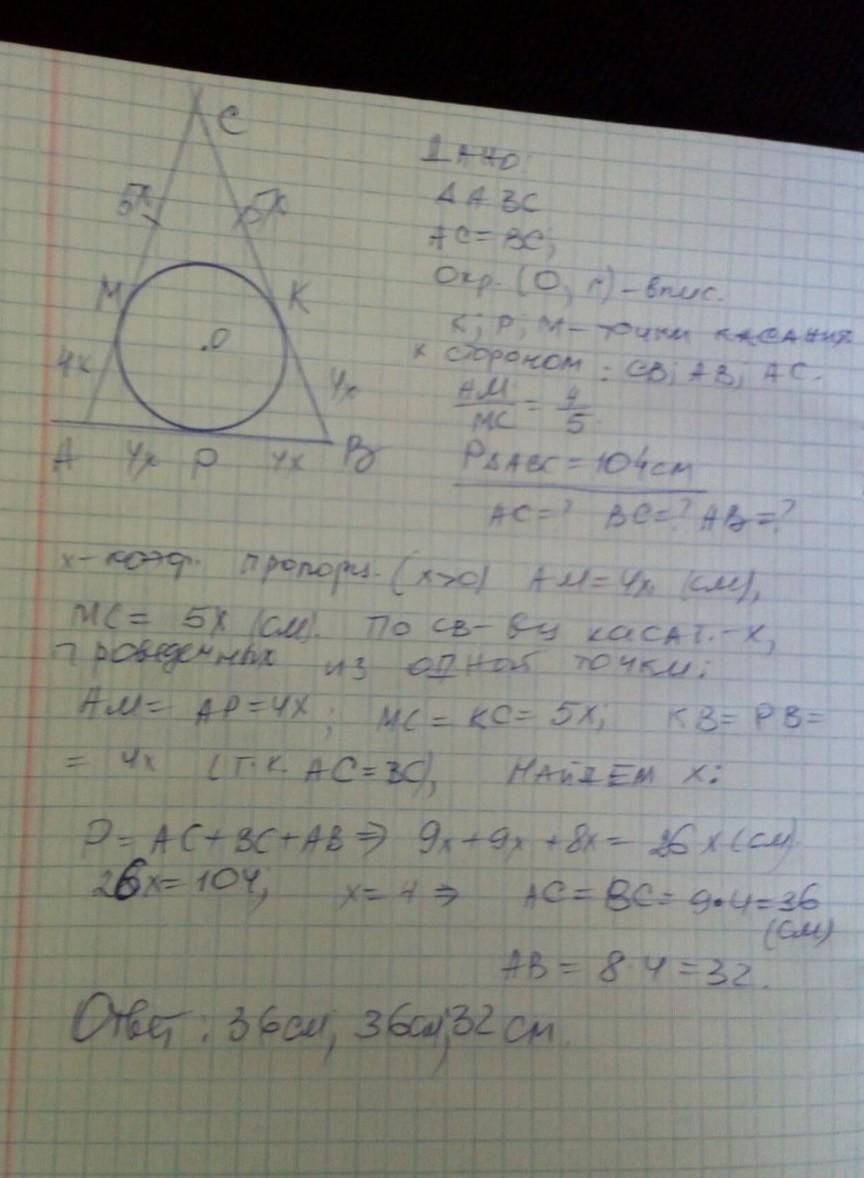 C
5x
5x
M
K
O
4x
4x
A
4x
P
4x
B
Дано:
Δ ABC
AC = BC;
Окр. (O, r) – впис.
K; P; M – точки касания
к сторонам : CB; AB; AC.
AM/MC = 4/5
PΔABC = 104см
AC=? BC=? AB=?
x – коэф. пропорц. (x>0) AM = 4x (см),
MC = 5x (см). По св-ву касат.-х,
проведенных из одной точки:
AM = AP = 4x; MC = KC = 5x; KB = PB =
= 4x (т.к. AC = BC), Найдем x:
P = AC + BC + AB ⇒ 9x + 9x + 8x = 26x (см)
26x = 104; x = 4 ⇒ AC = BC = 9·4 = 36
(см)
AB = 8·4 = 32.
Ответ : 36см, 36см, 32 см.